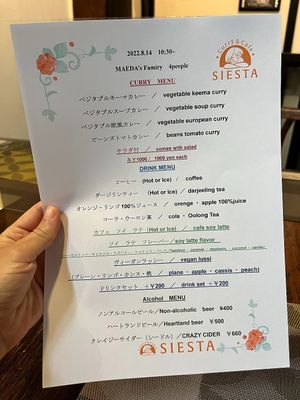 2022.8.14 10:30~
Curry & Cafe
SIESTA
MAEDA's Famiry 4people
CURRY MENU
ベジタブルキーマカレー / vegetable keema curry
ベジタブルスープカレー / vegetable soup curry
ベジタブル欧風カレー / vegetable european curry
ビーンズトマトカレー / beans tomato curry
サラダ付 / comes with salad
各¥1000 / 1000 yen each
DRINK MENU
コーヒー (Hot or Ice) / coffee
ダージリンティー (Hot or Ice) / darjeeling tea
オレンジ・リンゴ100%ジュース / orenge・apple 100%juice
コーラ・ウーロン茶 / cola・Oolong Tea
カフェ ソイ ラテ (Hot or Ice) / cafe soy latte
ソイ ラテ フレーバー / soy latte flavor
ヴィーガンラッシー / vegan lussi
(プレーン・リンゴ・カシス・桃 / plane・apple・cassis・peach)
ドリンクセット +¥200 / drink set +¥200
Alcohol MENU
ノンアルコールビール / Non-alcoholic beer ¥400
ハートランドビール / Heartland beer ¥500
クレイジーサイダー (シードル) / CRAZY CIDER ¥660
SIESTA